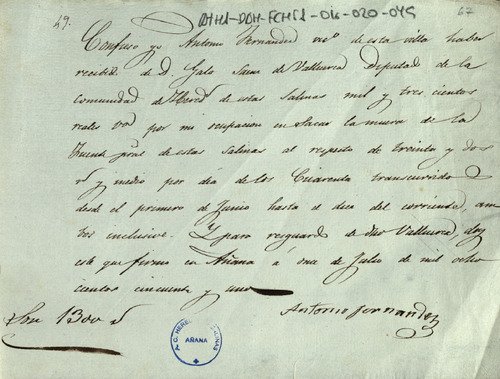 49.
ATHA-DAH-FCHTA-016-020-045
67
Confieso yo Antonio Fernandez vecº de esta villa haber
recibido de D. Galo Sainz de Valluerca Diputado de la
comunidad de Hered.s de estas Salinas mil y trescientos
reales vn por mi ocupacion en sacar la muera de la
Fuente pral de estas Salinas al respeto de treinta y dos
rs y medio por dia de los Cuarenta transcurridos
desde el primero de Junio hasta el diez del corriente, am
bos inclusive. Y para resguardo de dho Valluerca, doy
este que firmo en Añana á once de Julio de mil ocho
cientos cincuenta y uno
Son 1300 rs
Antonio Fernandez
AÑANA